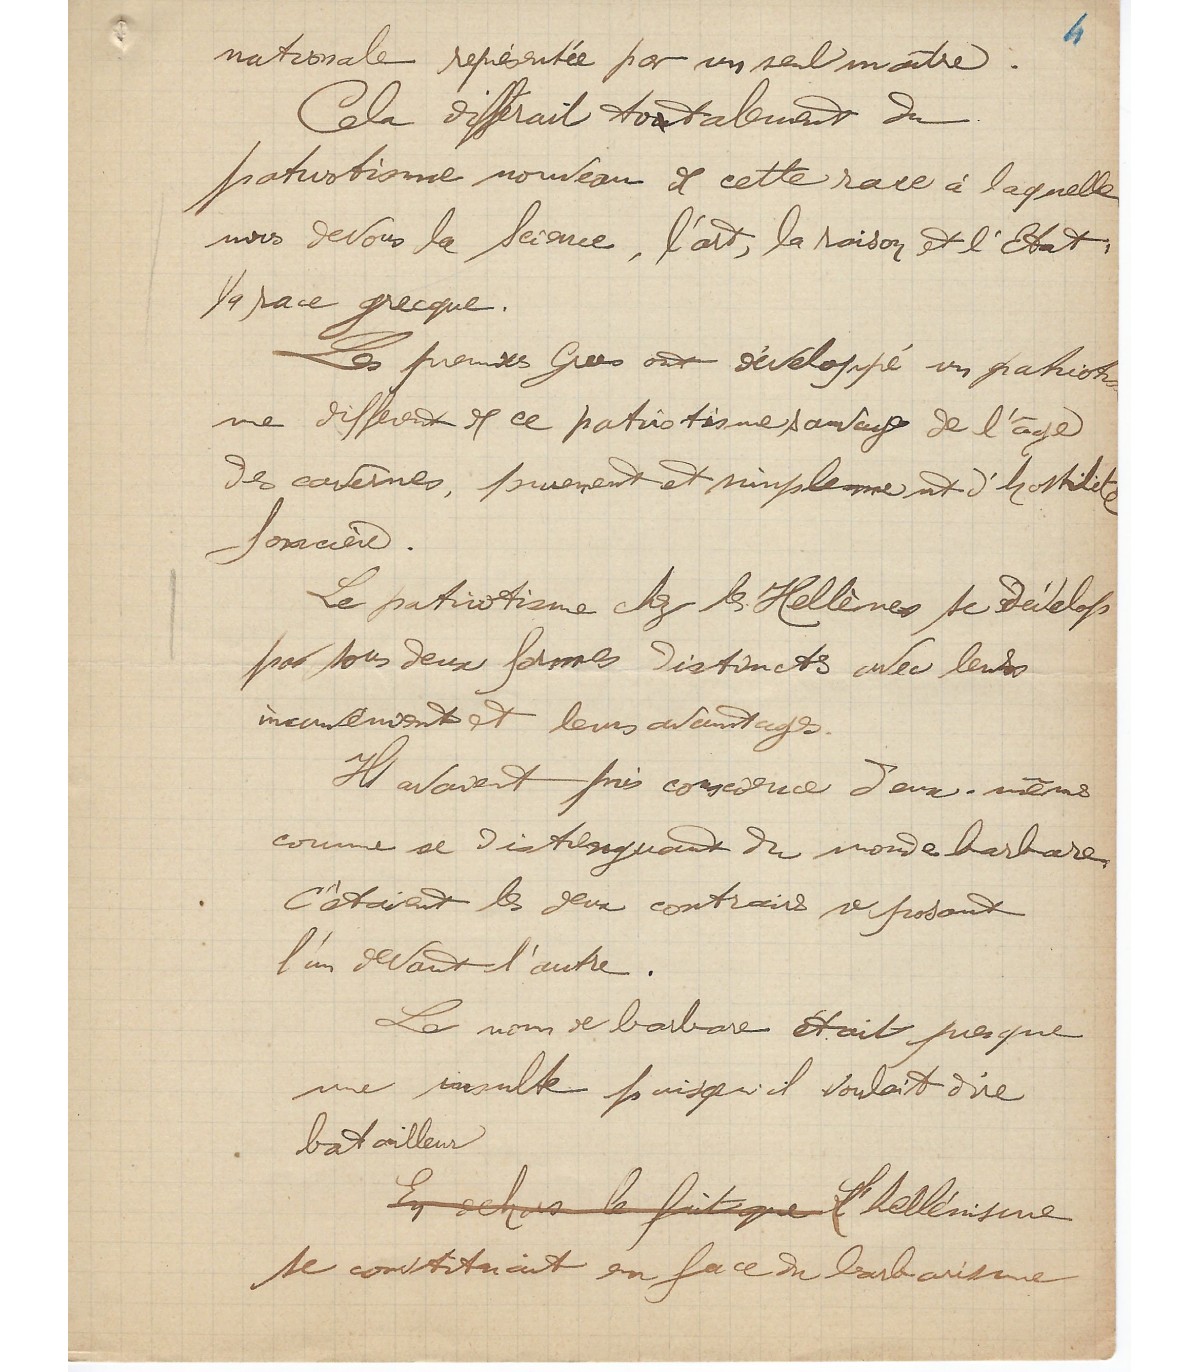 4
nationale représentée par un seul maître.
Cela différait totalement du
patriotisme nouveau de cette race à laquelle
nous devons la Science, l'art, la raison et l'Etat,
la race grecque.
Les premiers Grecs ont développé un patriotis
me différent de ce patriotisme sauvage de l'âge
des cavernes, purement et simplement d'hostilité
foncière.
Le patriotisme chez les Hellènes se dévelop
pa sous deux formes distinctes avec leurs
inconvénients et leurs avantages.
Il avaient pris conscience d'eux-même
comme se distinguant du monde barbare,
C'étaient les deux contraires se posant
l'un devant l'autre.
Le nom de barbare était presque
une insulte puisqu'il voulait dire
batailleur
En dehors le fait que l'hellénisme
se constituait en face du barbarisme